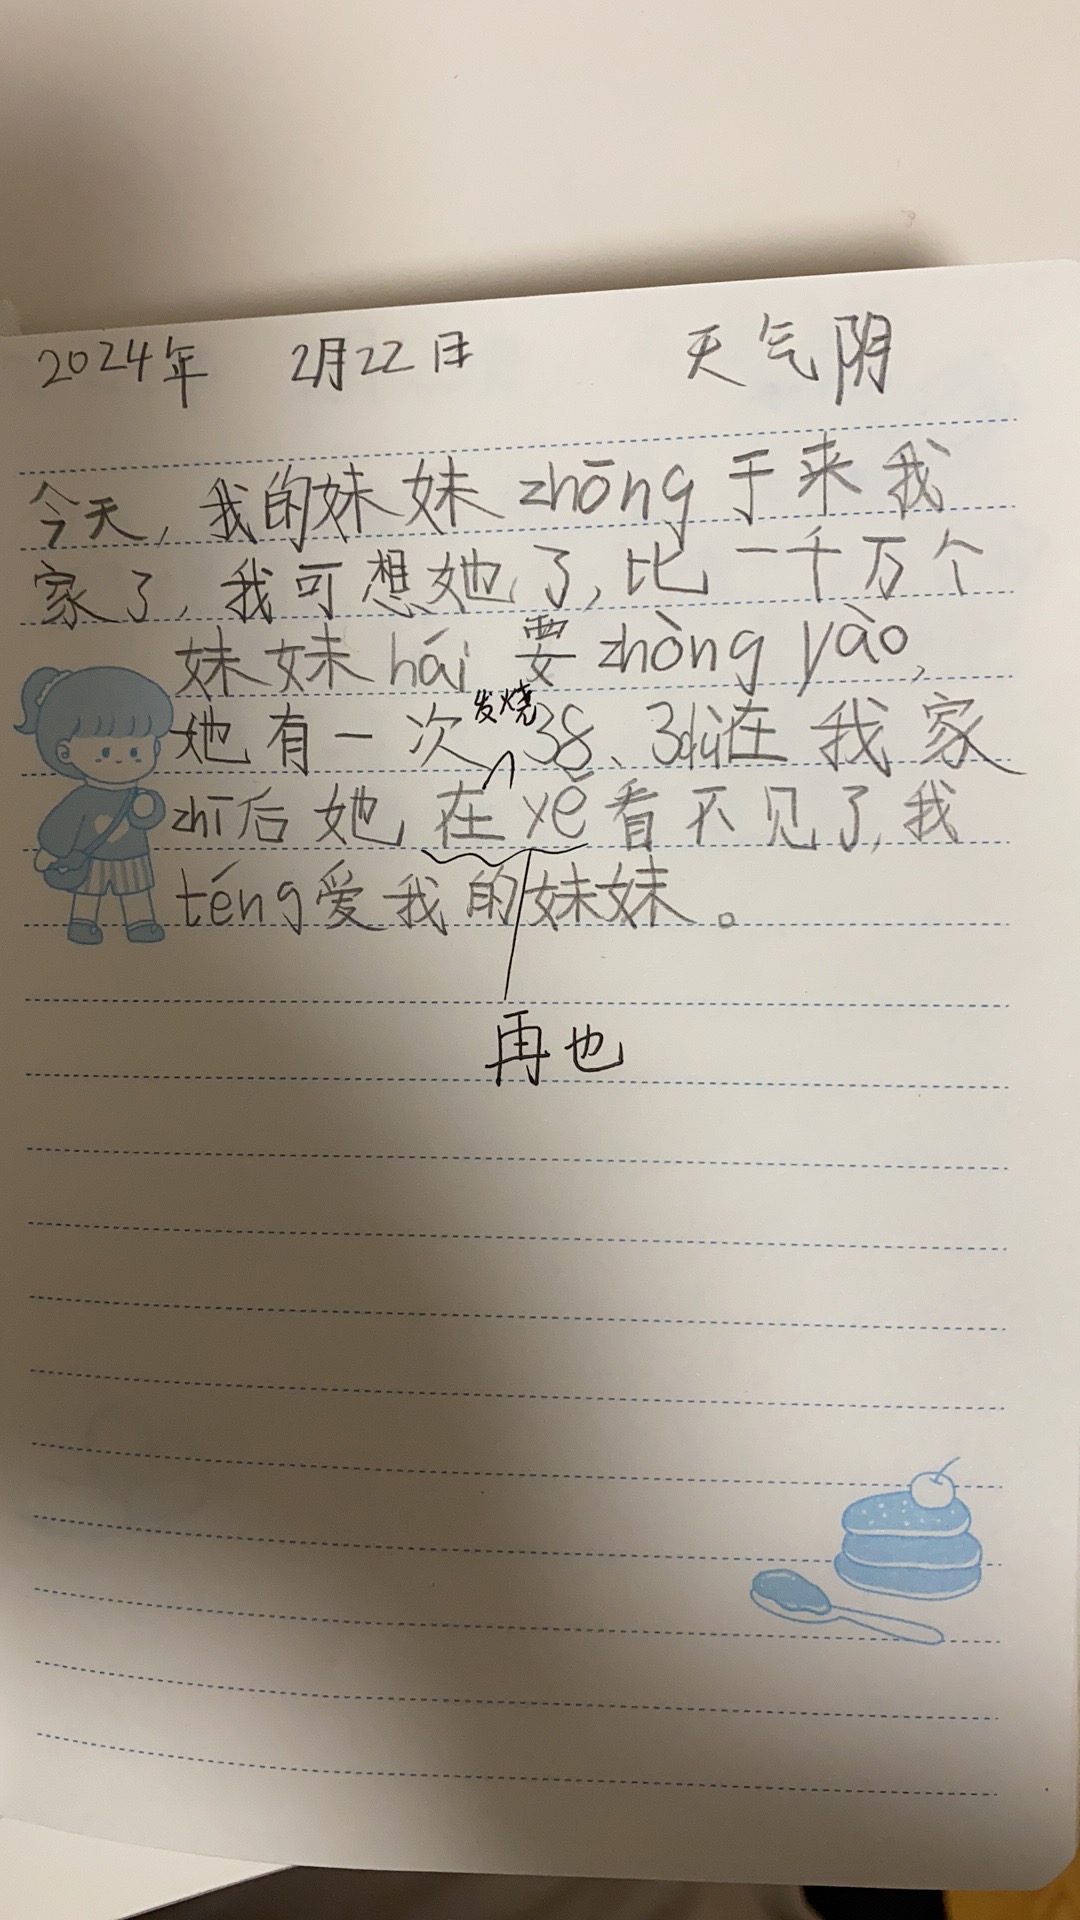 2024年 2月22日 天气阴
今天,我的妹妹zhōng于来我
家了,我可想她了,比一千万个
妹妹hái要zhòng yào,
发烧
她有一次38、3dù在我家
zhī后她在yě看不见了,我
téng爱我的妹妹。
再也